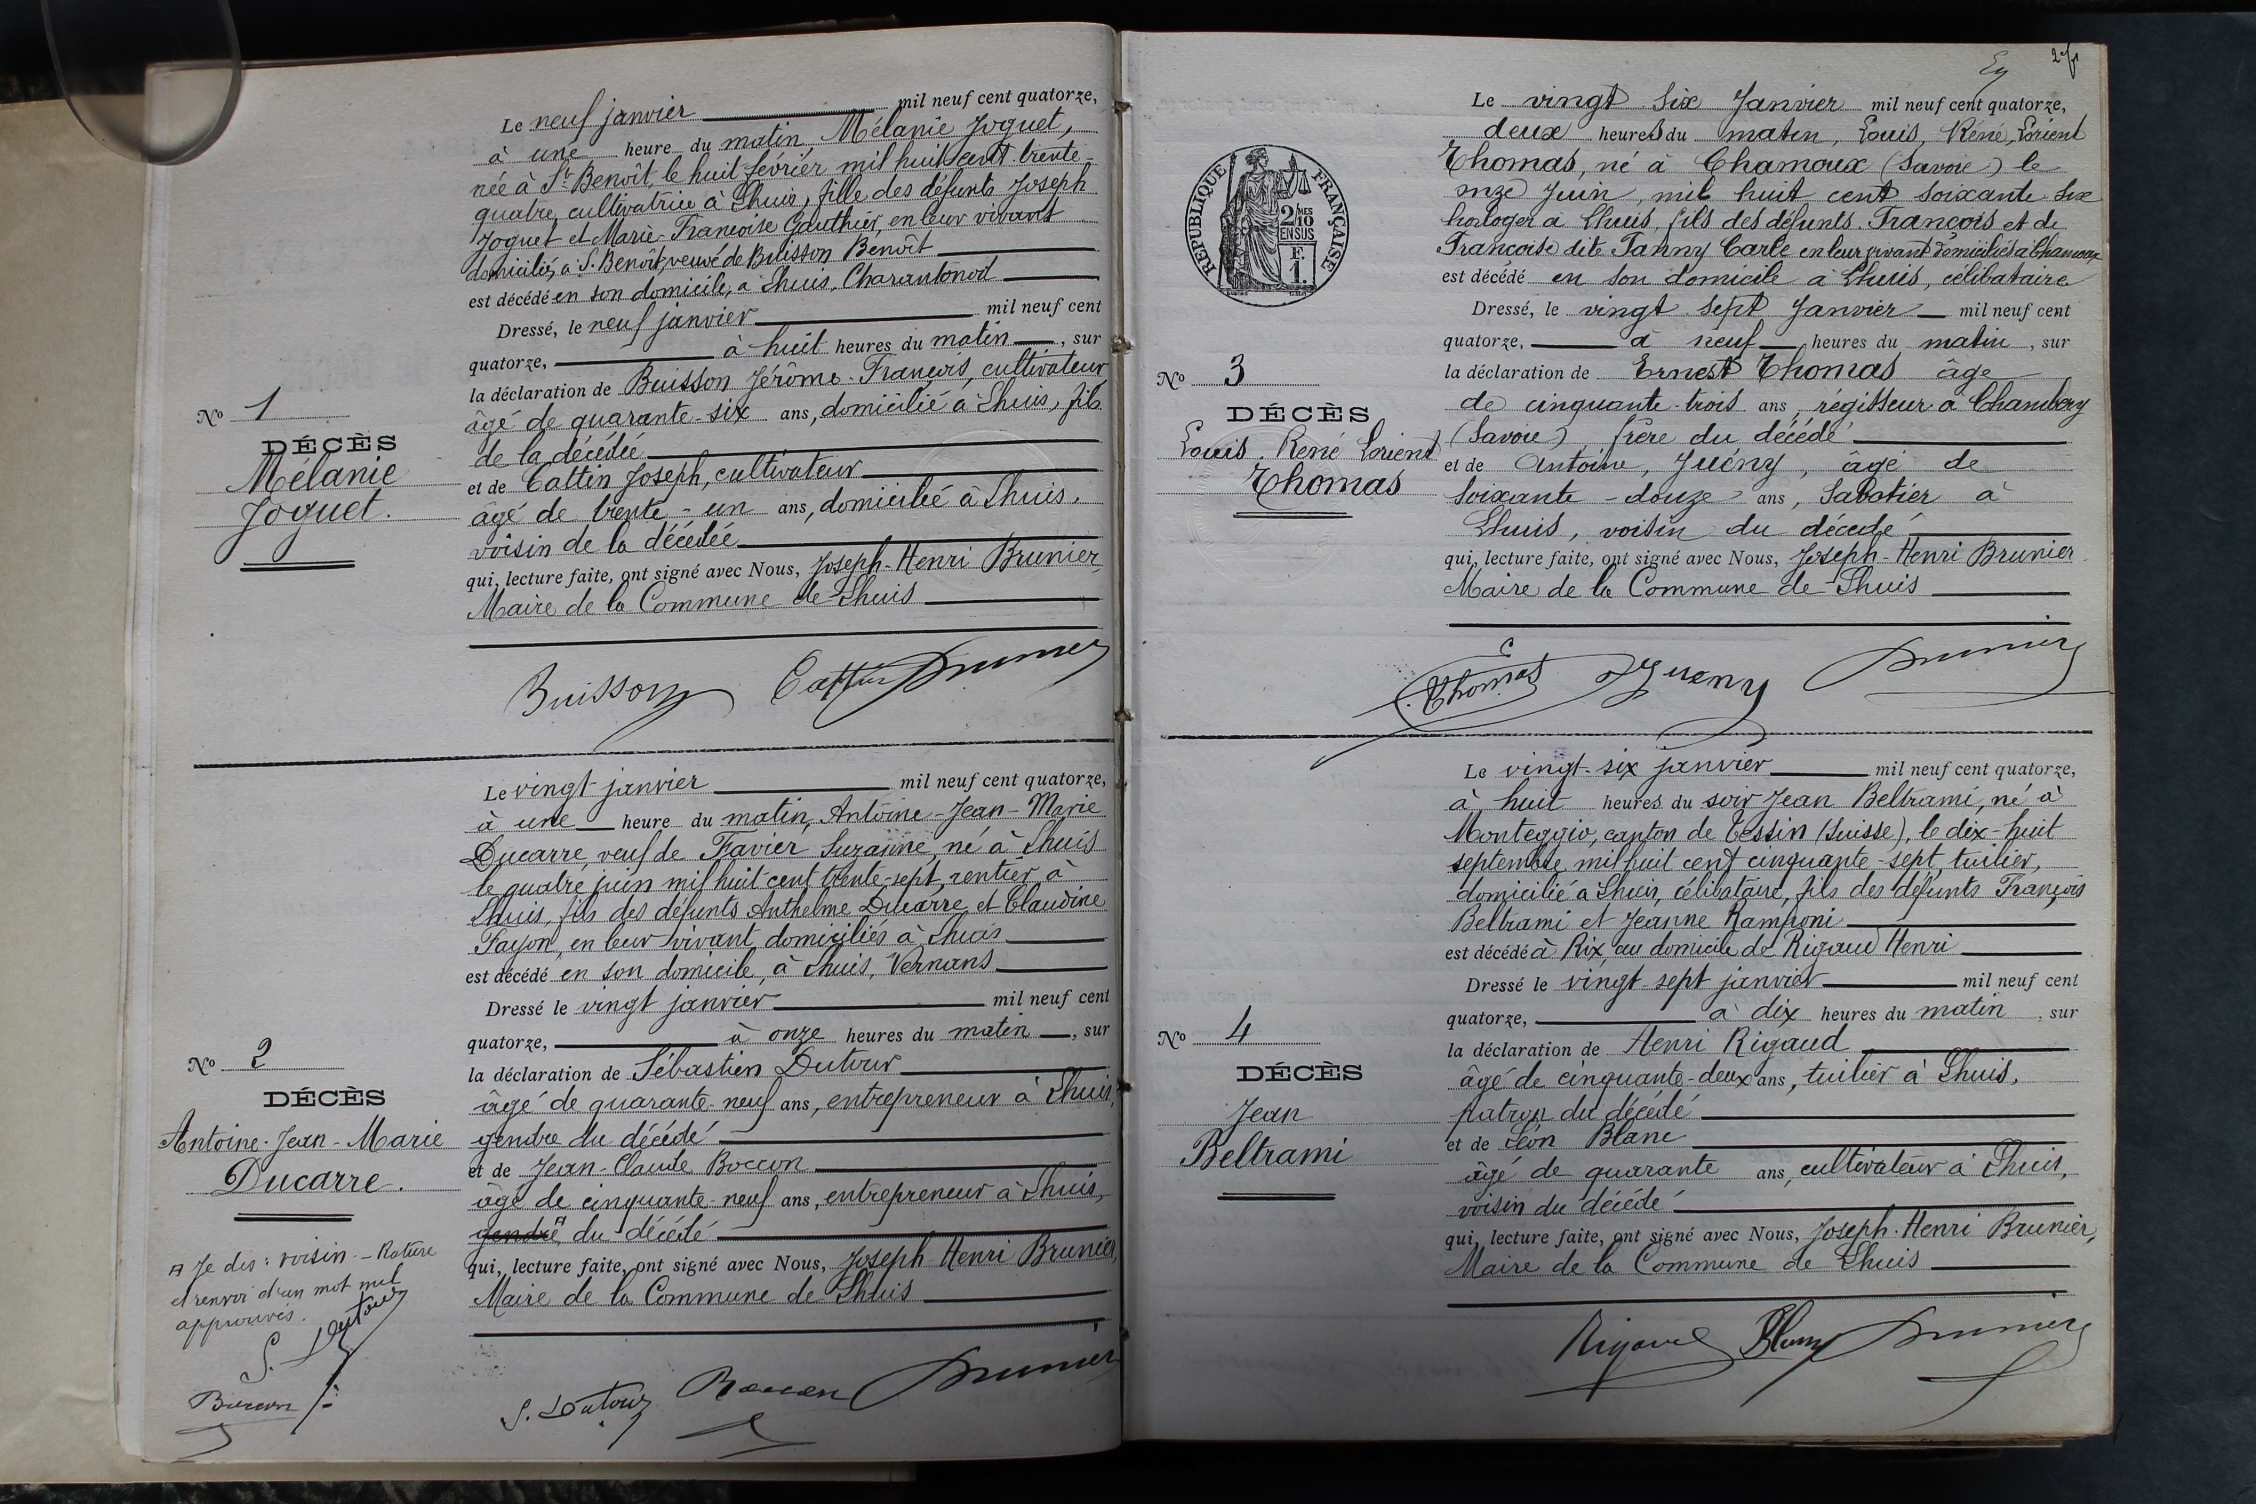 Le neuf janvier mil neuf cent quatorze,
à une heure du matin, Mélanie Joguet,
née à St Benoît, le huit février mil huit cent trente-
quatre, cultivatrice à Lhuis, fille des défunts Joseph
Joguet et Marie-Françoise Gauthier, en leur vivant
domiciliés à St Benoît, veuve de Buisson Benoît
est décédé en son domicile, à Lhuis, Charantonod
Dressé, le neuf janvier mil neuf cent
quatorze, à huit heures du matin, sur
la déclaration de Buisson Jérôme-François, cultivateur
âgé de quarante-six ans, domicilié à Lhuis, fils
de la décédée
et de Cattin Joseph, cultivateur
âgé de trente-un ans, domicilié à Lhuis.
voisin de la décédée
qui, lecture faite, ont signé avec Nous, Joseph-Henri Brunier,
Maire de la Commune de Lhuis
No 1
DÉCÈS
Mélanie
Joguet.
Buisson Cattin Brunier
Le vingt janvier mil neuf cent quatorze,
à une heure du matin, Antoine-Jean-Marie
Ducarre, veuf de Favier Suzanne, né à Lhuis
le quatre juin mil huit cent trente-sept, rentier à
Lhuis, fils des défunts Anthelme Ducarre et Claudine
Fayon, en leur vivant domiciliés à Lhuis
est décédé en son domicile, à Lhuis, Vernans
Dressé le vingt janvier mil neuf cent
quatorze, à onze heures du matin, sur
la déclaration de Sébastien Dutour
âgé de quarante-neuf ans, entrepreneur à Lhuis,
gendre du décédé
et de Jean-Claude Boccon
âgé de cinquante-neuf ans, entrepreneur à Lhuis,
gendre du décédé
qui, lecture faite, ont signé avec Nous, Joseph Henri Brunier,
Maire de la Commune de Lhuis
No 2
DÉCÈS
Antoine-Jean-Marie
Ducarre.
Je dis: voisin - Rature
et renvoi d'un mot nul
approuvés.
S. Dutour
Boccon
S. Dutour Boccon Brunier
Le vingt six Janvier mil neuf cent quatorze,
deux heures du matin, Louis, Réné, Lorient
Thomas, né à Chamoux (Savoie) le
onze Juin, mil huit cent soixante six
horloger à Lhuis, fils des défunts François et de
Françoise dite Fanny Carle en leur vivant domiciliés à Chamoux
est décédé en son domicile à Lhuis, célibataire
Dressé, le vingt sept Janvier mil neuf cent
quatorze, à neuf heures du matin, sur
la déclaration de Ernest Thomas âgé
de cinquante-trois ans, régisseur à Chambery
(Savoie), frère du décédé
et de Antoine, Juény, âgé de
soixante-douze ans, Sabotier à
Lhuis, voisin du décédé
qui, lecture faite, ont signé avec Nous, Joseph-Henri Brunier
Maire de la Commune de Lhuis
RÉPUBLIQUE FRANÇAISE
2/10MES
EN SUS
F.
1.
No 3
DÉCÈS
Louis René Lorient
Thomas
Thomas Jueny Brunier
Le vingt-six janvier mil neuf cent quatorze,
à huit heures du soir Jean Beltrami, né à
Monteggio, canton de Tessin (Suisse), le dix-huit
septembre mil huit cent cinquante-sept, tuilier,
domicilié à Lhuis, célibataire, fils des défunts François
Beltrami et Jeanne Ramponi
est décédé à Rix, au domicile de Rigaud Henri
Dressé le vingt-sept janvier mil neuf cent
quatorze, à dix heures du matin, sur
la déclaration de Henri Rigaud
âgé de cinquante-deux ans, tuilier à Lhuis,
patron du décédé
et de Léon Blanc
âgé de quarante ans, cultivateur à Lhuis,
voisin du décédé
qui, lecture faite, ont signé avec Nous, Joseph-Henri Brunier,
Maire de la Commune de Lhuis
No 4
DÉCÈS
Jean
Beltrami
Rigaud Blanc Brunier